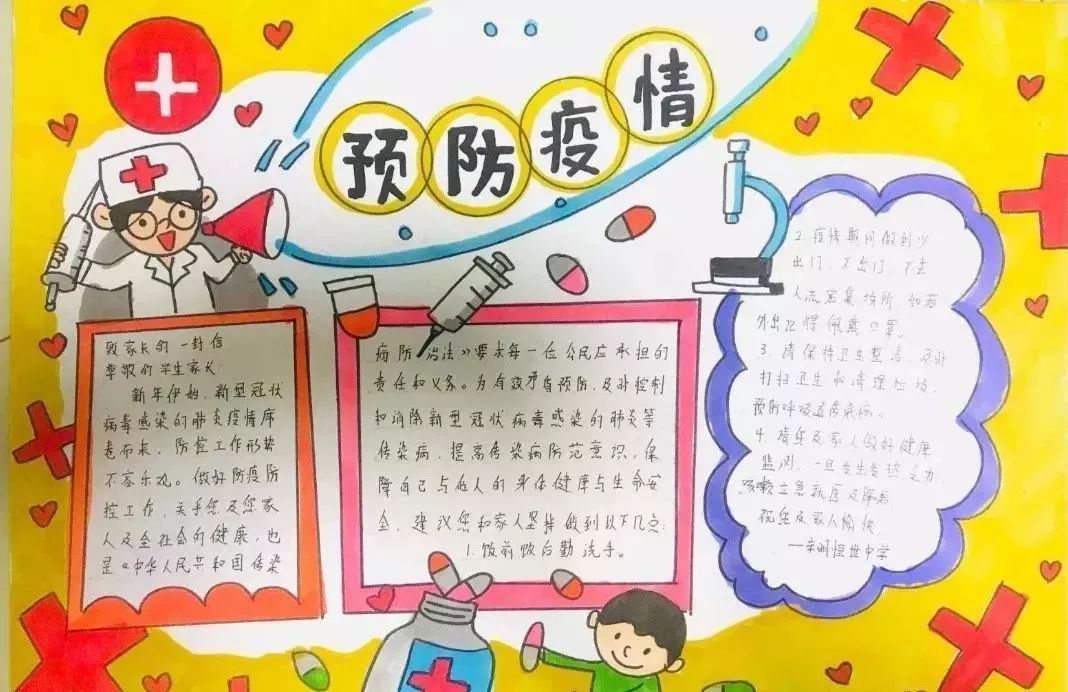 预防疫情
致家长的一封信
尊敬的学生家长:
新年伊始,新型冠状
病毒感染的肺炎疫情席
卷而来,防控工作形势
不容乐观。做好防疫防
控工作,关乎您及您家
人及全社会的健康,也
是《中华人民共和国传染
病防治法》要求每一位公民应承担的
责任和义务。为有效矛盾预防,及时控制
和消除新型冠状病毒感染的肺炎等
传染病,提高传染病防范意识,保
障自己与他人的身体健康与生命安
全,建议您和家人坚持做到以下几点:
1.饭前饭后勤洗手。
2.疫情期间做到少
出门、不出门、不去
人流密集场所,如若
外出记得佩戴口罩。
3.请保持卫生整洁,及时
打扫卫生和清理垃圾,
预防呼吸道传染病。
4.请您及家人做好健康
监测,一旦发生发热乏力,
咳嗽立急就医及隔离
祝您及家人愉快
恒世中学